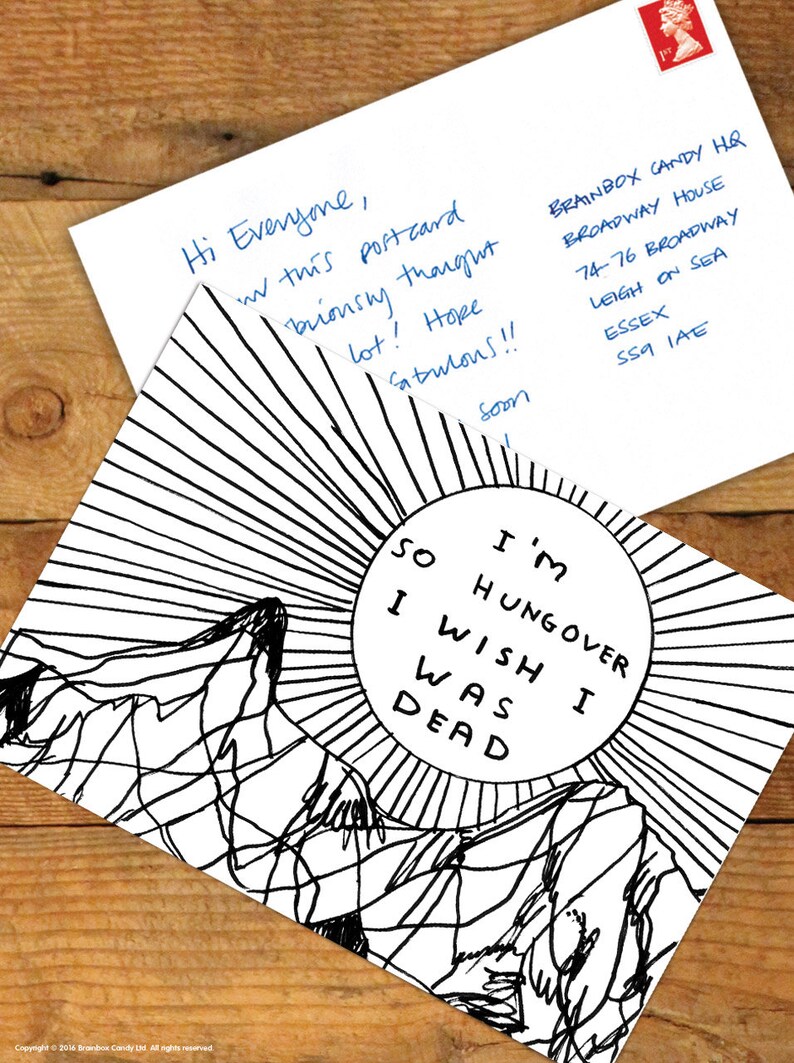 1ST
Hi Everyone,
this postcard
thought
lot! Hope
fabulous!!
soon
BRAINBOX CANDY HQ
BROADWAY HOUSE
74-76 BROADWAY
LEIGH ON SEA
ESSEX
SS9 1AE
I'M
SO HUNGOVER
I WISH I
WAS
DEAD
Copyright © 2016 Brainbox Candy Ltd. All rights reserved.